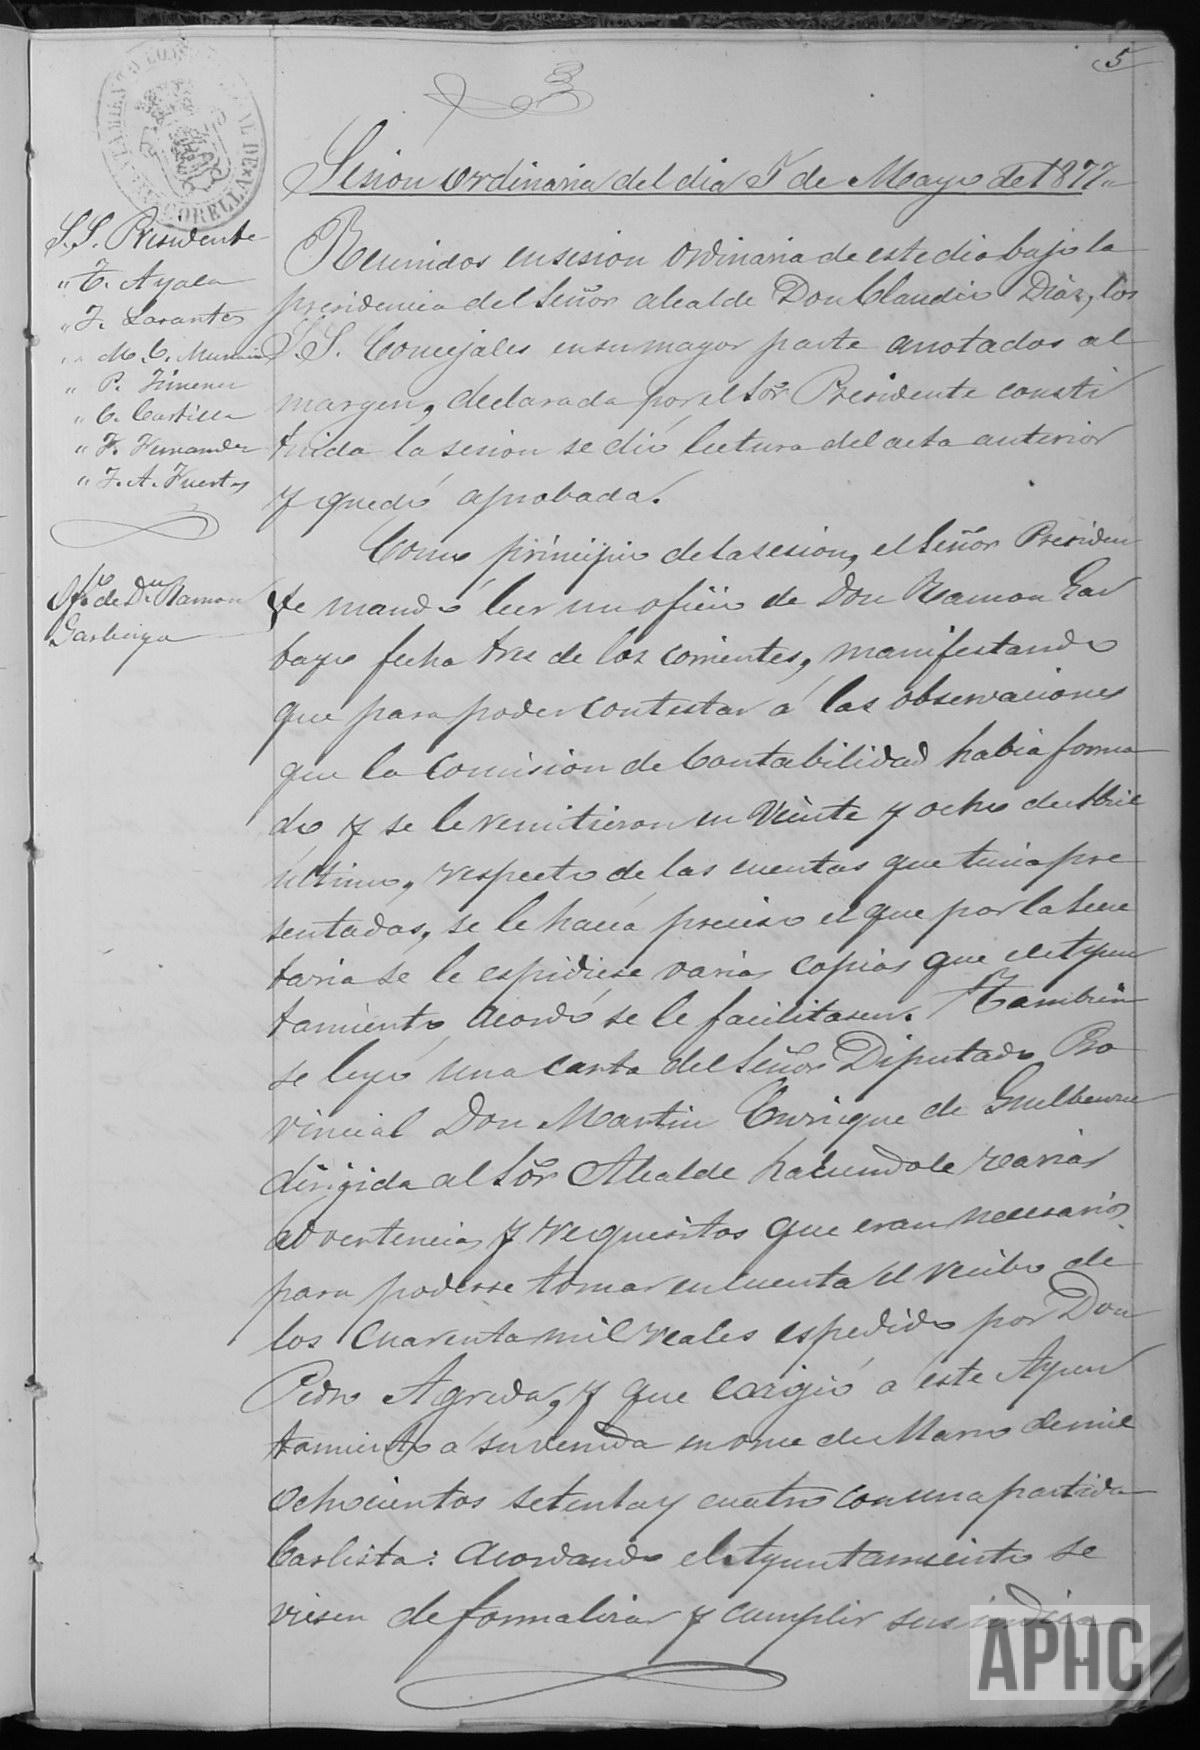 5
Sesion ordinaria del dia 5 de Mayo de 1877
S.S. Presidente
" T. Ayala
" J. Lorante
" M. C.
" P. Jimenez
" C. Castilla
" F. Fernandez
" J. A. Huertas
Reunidos en sesion ordinaria de este dia bajo la
presidencia del Señor alcalde Don Claudio Diaz, los
S.S. Concejales en su mayor parte anotados al
margen, declarada por el Sor Presidente consti
tuida la sesion se dió lectura del acta anterior
y quedó aprobada.
Ofo. de Dn. Ramon
Garbayo
Como principio de la sesion, el Señor Presiden
te mandó leer un oficio de Don Ramon Gar
bayo fecha tres de los corrientes, manifestando
que para poder contestar á las observaciones
que la Comision de Contabilidad habia forma
do y se le remitieron en Veinte y ocho de Abril
último, respecto de las cuentas que tenia pre
sentadas, se le hacia preciso el que por la Secre
taria se le espidiese varias copias que el Ayun
tamiento acordó se le facilitasen. Tambien
se leyó una carta del Señor Diputado Pro
vincial Don Martin Enrique de Guelbenzu
dirigida al Sor Alcalde haciendole varias
advertencias y requisitos que eran necesarios
para poderse tomar en cuenta el recibo de
los cuarenta mil reales espedido por Don
Pedro Agreda, y que exigió á este Ayun
tamiento á su venida en once de Marzo de mil
ochocientos setenta y cuatro con una partida
Carlista: acordando el Ayuntamiento se
viesen de formalizar y cumplir sus indica
APHC